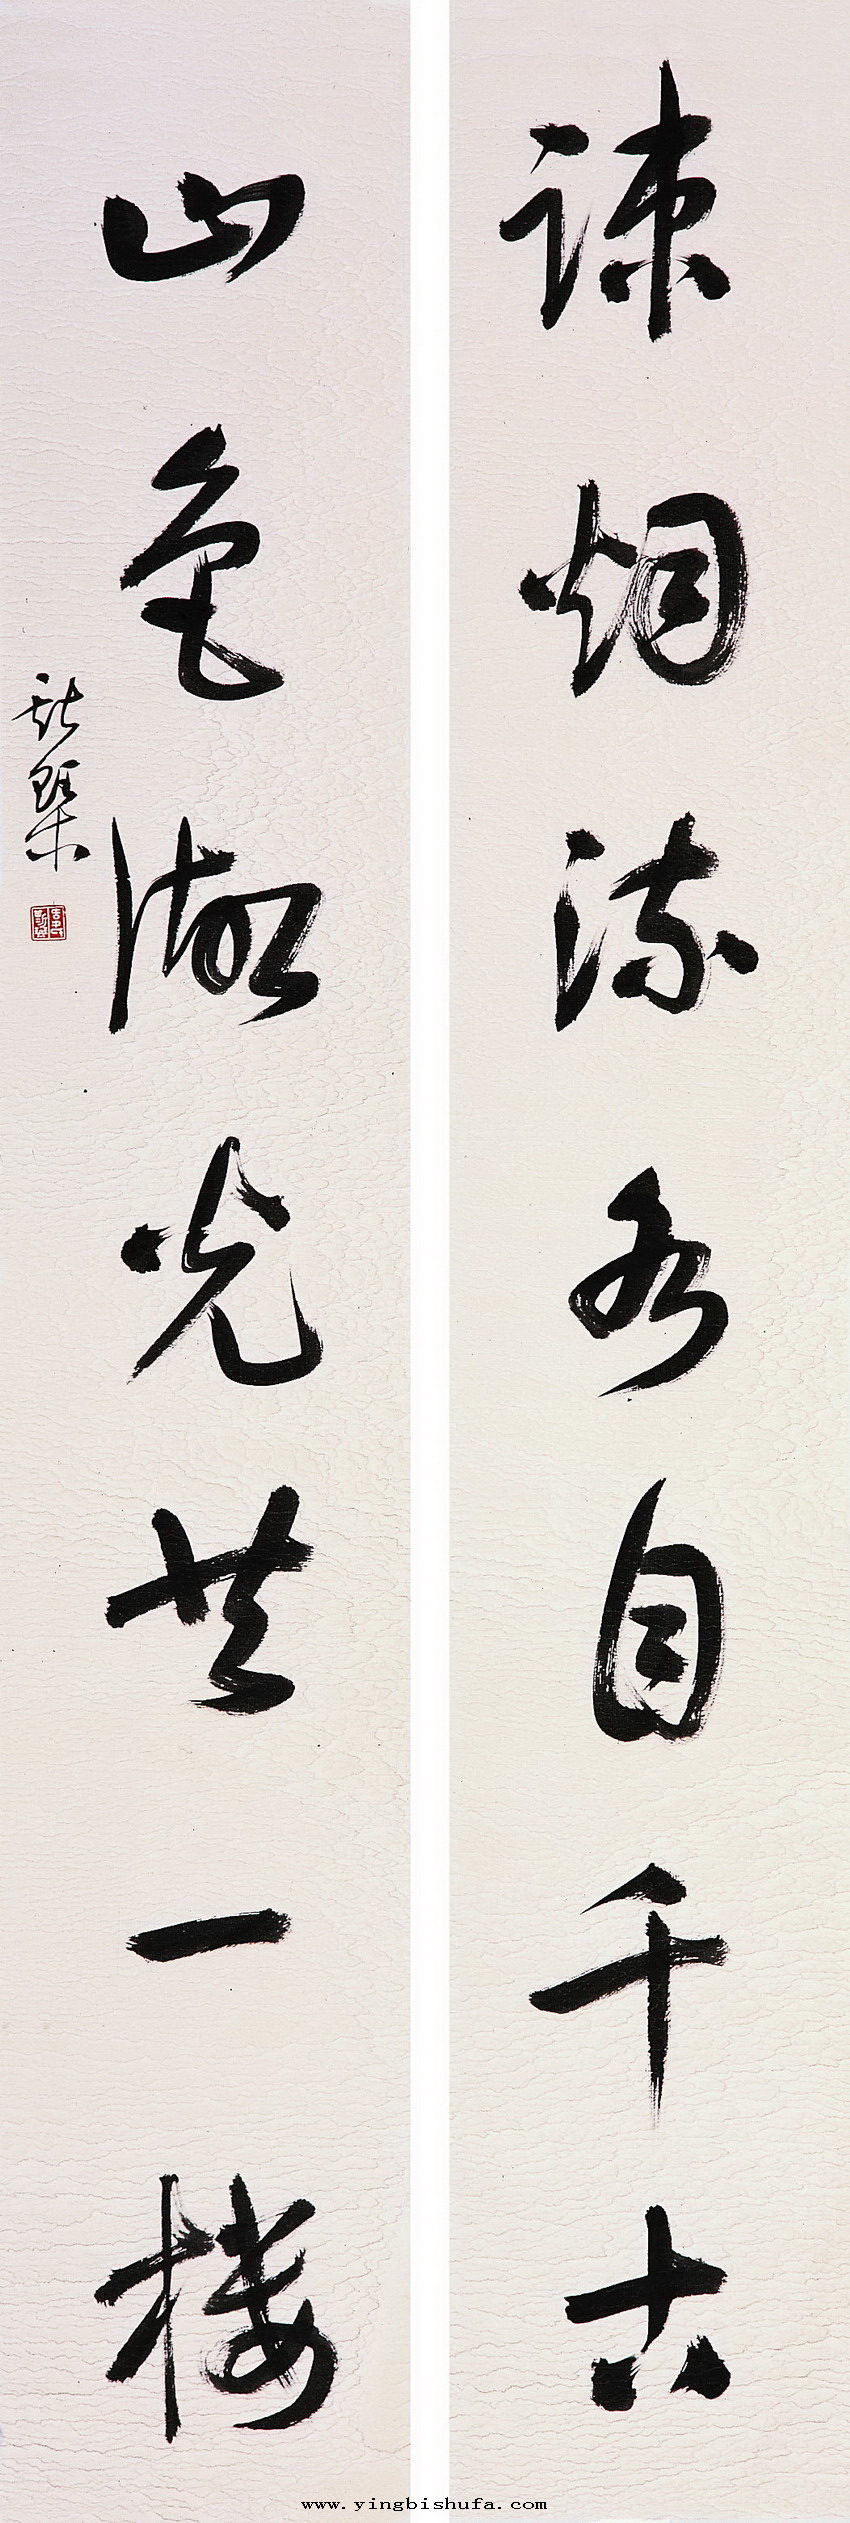 疎烟流水自千古
山色湖光共一楼
www.yingbishufa.com